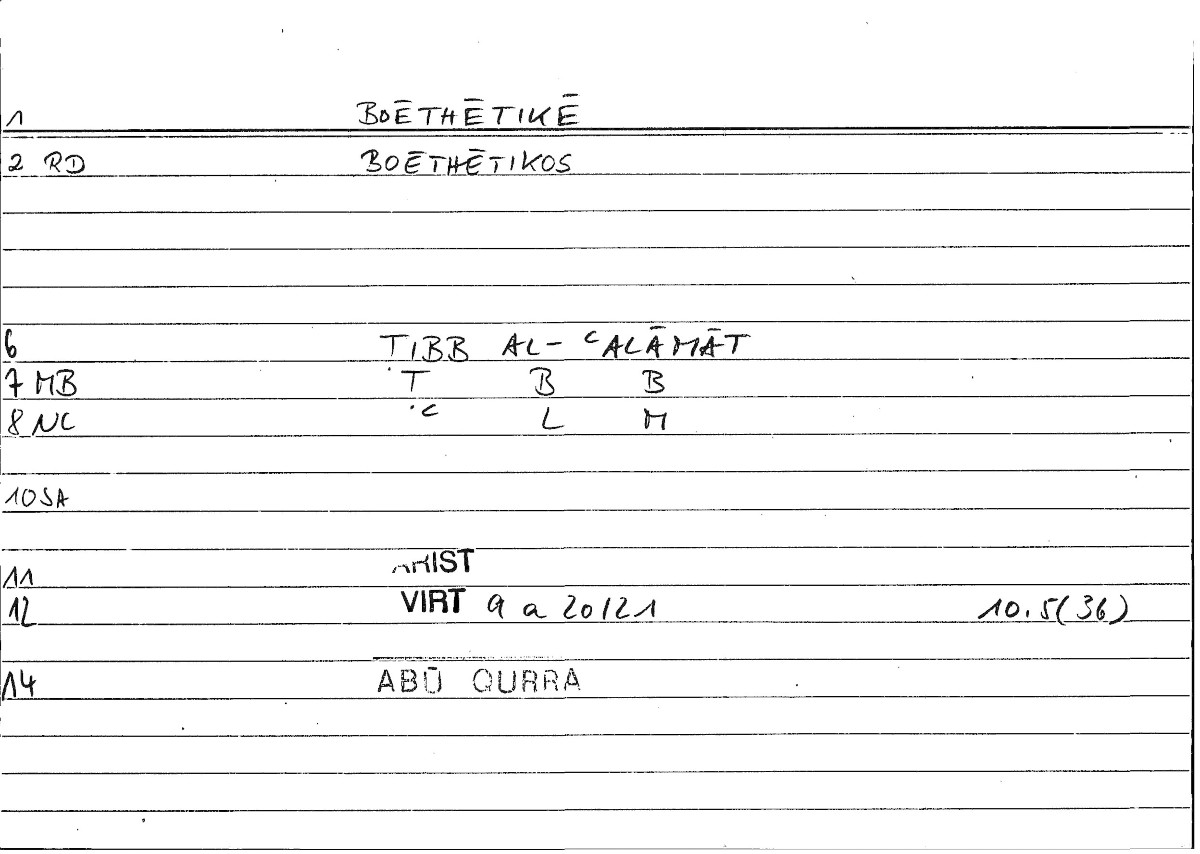 1 BOĒTHĒTIKĒ
2 RD BOĒTHĒTIKOS
6 ṬIBB AL-ʿALĀMĀT
7 MB Ṭ B B
8 NC ʿ L M
10 SA
11 ARIST
12 VIRT 9 a 20/21 10.5(36)
14 ABŪ QURRA